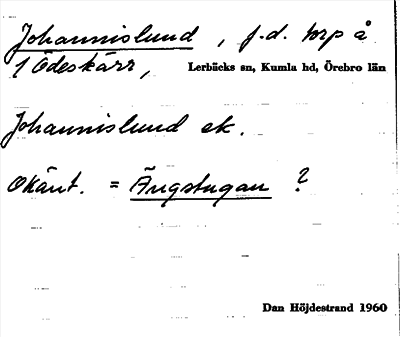 Johannislund, f.d. torp å
1 Ödeskärr, Lerbäcks sn, Kumla hd, Örebro län
Johannislund ek.
Okänt. = Ängstugan ?
Dan Höjdestrand 1960